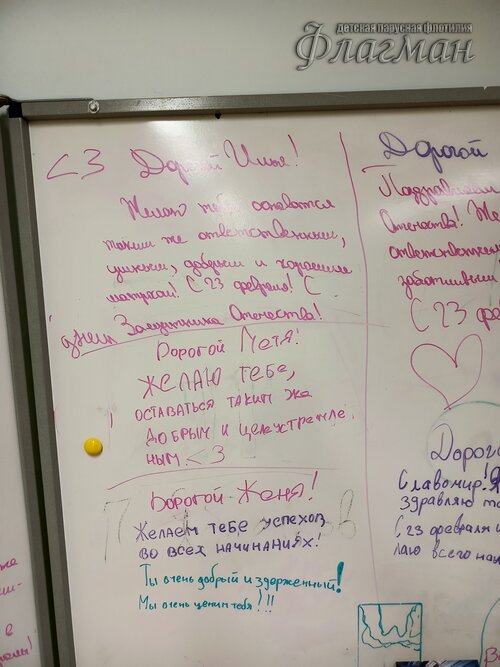 детская парусная флотилия
Флагман
<3 Дорогой Илья!
Желаю тебе оставатся
таким же ответственным,
умным, добрым и хорошим
матросом! С 23 февраля! С
днем Защитника Отечества!
Дорогой Петя!
ЖЕЛАЮ ТЕБЕ,
ОСТАВАТЬСЯ ТАКИМ ЖЕ
ДОБРЫМ И ЦЕЛЕУСТРЕМЛЕ
НЫМ <3
Дорогой Женя!
Желаем тебе успехов
во всех начинаниях!
Ты очень добрый и здерженный!
Мы очень ценим тебя!!!
Дорогой
Поздравляем
Отечества! Же
ответственным
заботливым
С 23 фе
Дорого
Славомир! Я
здравляю те
С 23 февраля и
лаю всего на
же
в